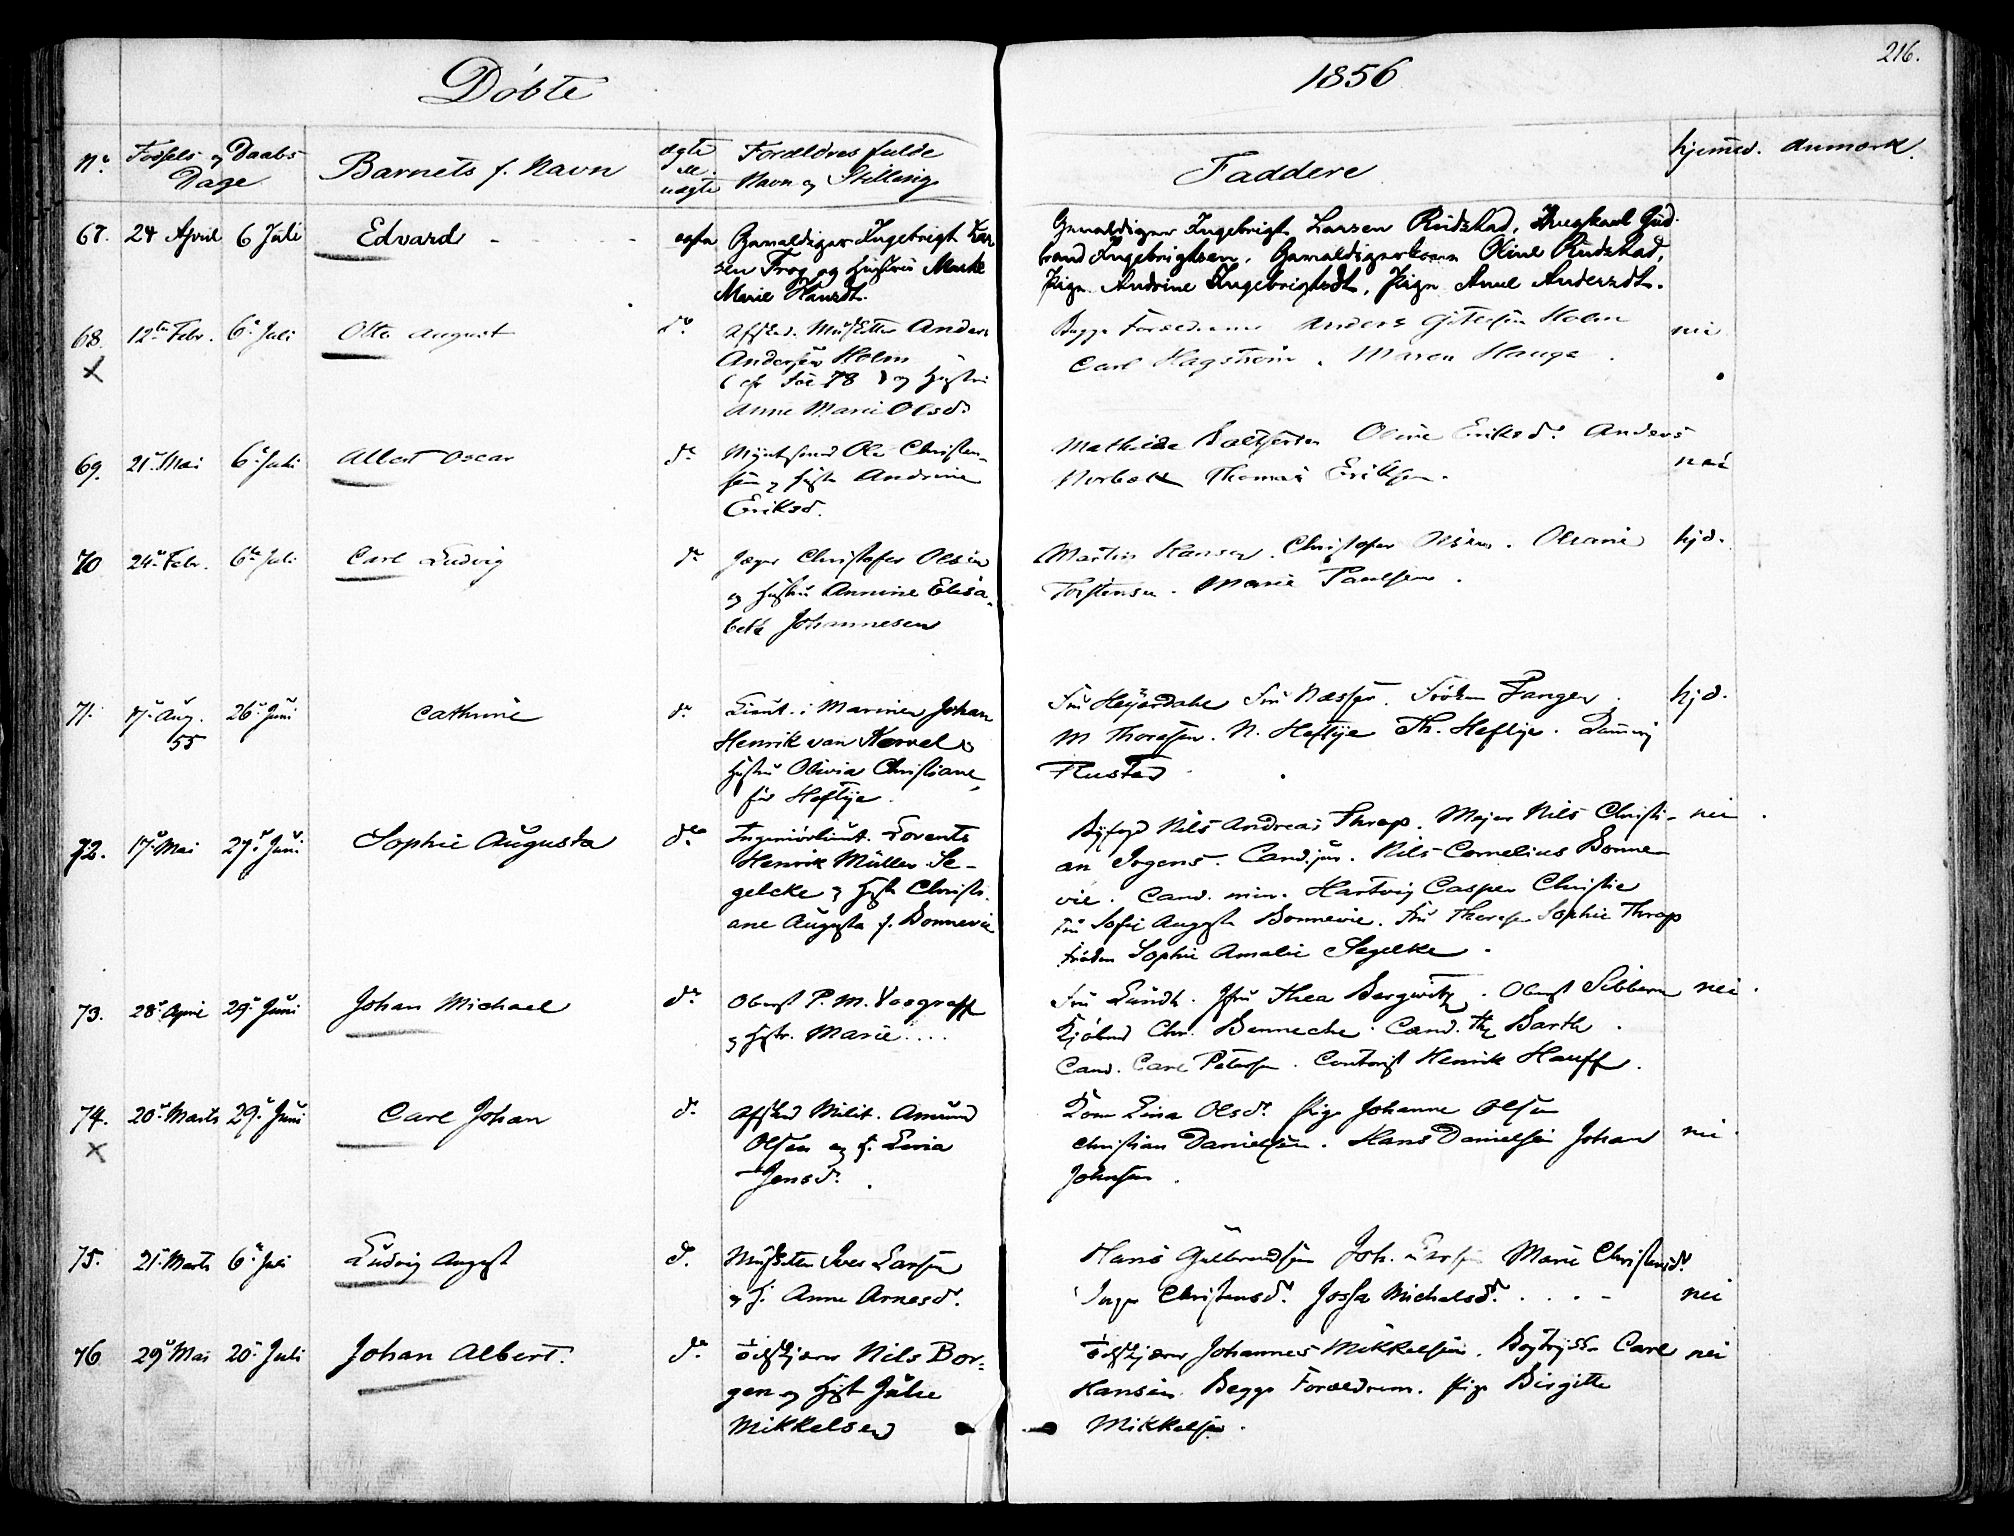 216.
Döbte 1856
No Födsels og Daabs Dage
Barnets f. Navn
ægte ell. uægte
Forældres fulde Navn og Stilling
Faddere
hjemed. Anmærk.
67. 24 April 6 Juli Edvard ægte Gevaldiger Ingebrigt Lar
sen Trog og Hustru Marthe
Marie Hansdtr.
Gevaldiger Ingebrigt Larsen Rudstad, Gud
brand Ingebrigtsen, Gevaldigerkone Oline Rudstad,
Pige Andrine Ingebrigtsdt., Pige Anne Andersdt.
68. 12te Febr. 6 Juli Otto August do Afsked. Musketeer Anders
Andersen Holm
78 og Hustru
Anne Marie Olsd.
Begge Forældrene Anders Holm nei
Carl Hagström. Maren Hauge.
69. 21 Mai 6 Juli Albert Oscar do Ole Christen-
sen og Andrine
Eriksd.
Mathilde Oline Eriksd. Anders
Norbek Thomas Eriksen. nei
70 24 Febr. 6te Juli Carl Ludvig do Jæger Christofer Olsen
og Hustru Annine Elisa-
beth Johannesen
Martin Hansen. Christofer Olsen. Oleanne hjd.
Torstensen. Marie Paulsen.
71. 17 Aug. 55 26 Juni Cathrine do Lieut. i Marinen Johan
Henrik van Kervel og
Hustru Olivia Christiane
för Heftye.
Fru Heyerdahl Fru Næsser. Fröken Fanger. hjd.
M Thoresen. N. Heftye Th. Heftye.
Flustad
72. 17 Mai 27 Juni Sophie Augusta do Ingeniörlieut. Lorents
Henrik Müller Se-
gelcke og Hst. Christi-
ane Augusta f. Bonnevie
Byfogd Nils Andreas Thrap. Major Nils Christi- nei
an Irgens. Cand. jur. Nils Cornelius Bonne-
vie. Cand. min. Hartvig Casper Christie
Fru Sofie Augusta Bonnevie. Fru Therese Sophie Thrap
Fröken Sophie Amalie Segelke.
73. 28 April 29 Juni Johan Michael do Oberst P. M. Voograff
og Hstr. Marie ....
Fru Lundh. Jfru Thea Bergwitz. Oberst Sibbern nei.
Kjöbmd Chr. Bennecke. Cand. Th. Barth.
Cand. Carl Petersen. Contorist Henrik Hauff.
74. 20 Marts 29 Juni Carl Johan do Afsked Milit. Amund
Olsen og H. Livia
Jensd.
Kone Lina Olsd. Pige Johanne Olsen
Christian Danielsen. Hans Danielsen Johan nei.
Johnsen.
75. 21 Marts 6 Juli Ludvig August do Musketeer Iver Larsen
og H. Anne Arnesd.
Hans Gulbrandsen Joh. Larsen Marie Christensd.
Inger Christensd. Josfa Michelsd. nei
76 29 Mai 20 Juli Johan Albert. do Nils Bor-
gen og Hst Julie
Mikkelsen
Johannes Mikkelsen. Bogtrykker Carl nei
Hansen. Begge Forældrene. Pige Birgitte
Mikkelsen.